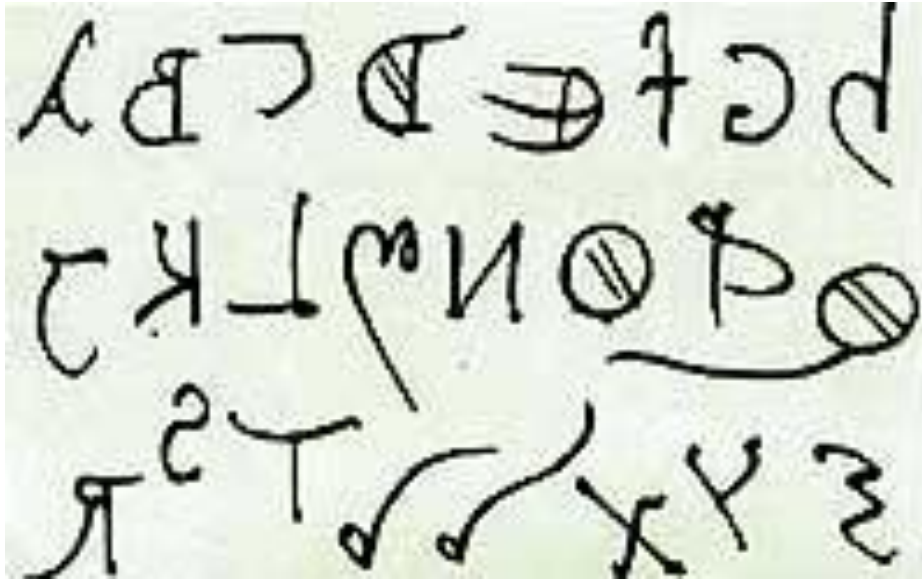 A B C D E F G H
J K L M N O P Q
R S T U V X Y Z